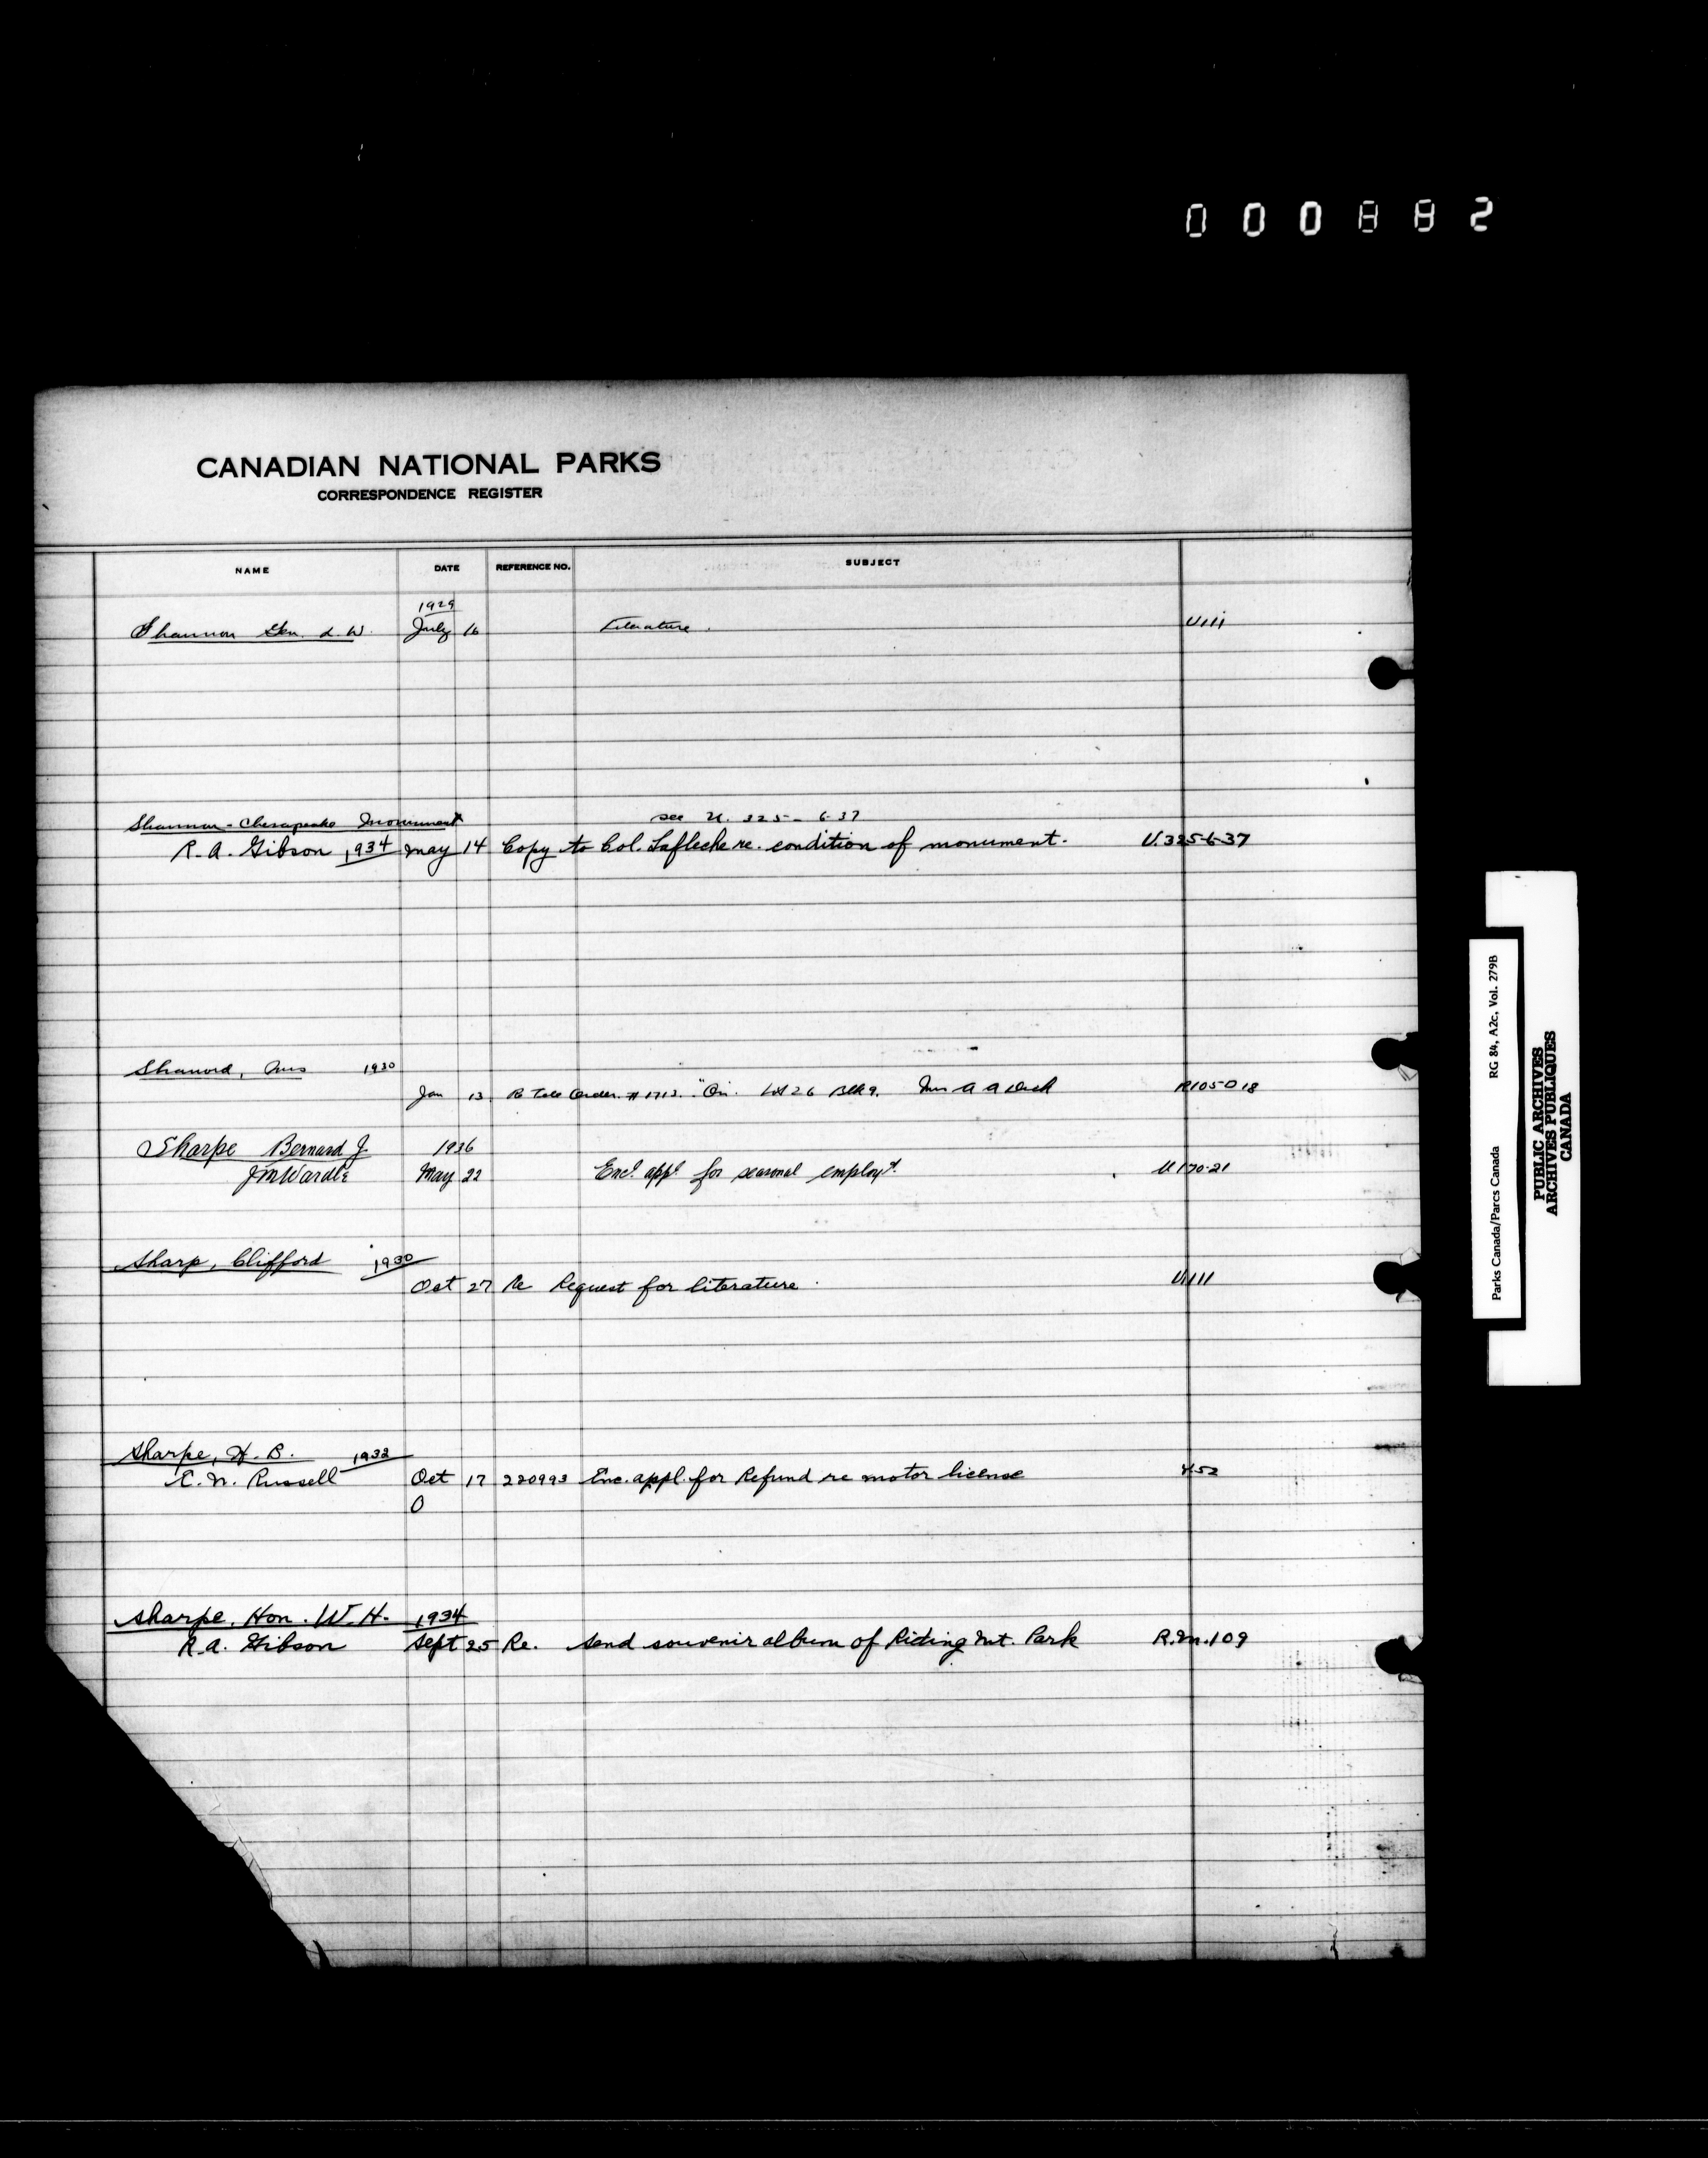 000882
CANADIAN NATIONAL PARKS
CORRESPONDENCE REGISTER
NAME DATE REFERENCE NO. SUBJECT
1929
Shannon Gen. L. W. July 16 Literature. U111
Shannon-Chesapeake Monument see U. 325-6-37
R. A. Gibson 1934 May 14 Copy to Col. Lafleche re. condition of monument. U.325-6-37
1930
Jan 13 Re Order #1713. Lot 26 Blk 9. Mrs A A R105-D18
Sharpe Bernard J. 1936
J M Wardle May 22 Encl appl for seasonal employt. U170-21
Sharp, Clifford 1930
Oct 27 Re Request for literature. U111
Sharpe, H. B. 1932
E. N. Russell Oct 17 220993 Enc. appl. for Refund re motor license Y52
O
Sharpe, Hon. W. H. 1934
R. A. Gibson Sept 25 Re. Send souvenir album of Riding Mt. Park R.M.109
Parks Canada/Parcs Canada RG 84, A2c, Vol. 279B
PUBLIC ARCHIVES
ARCHIVES PUBLIQUES
CANADA